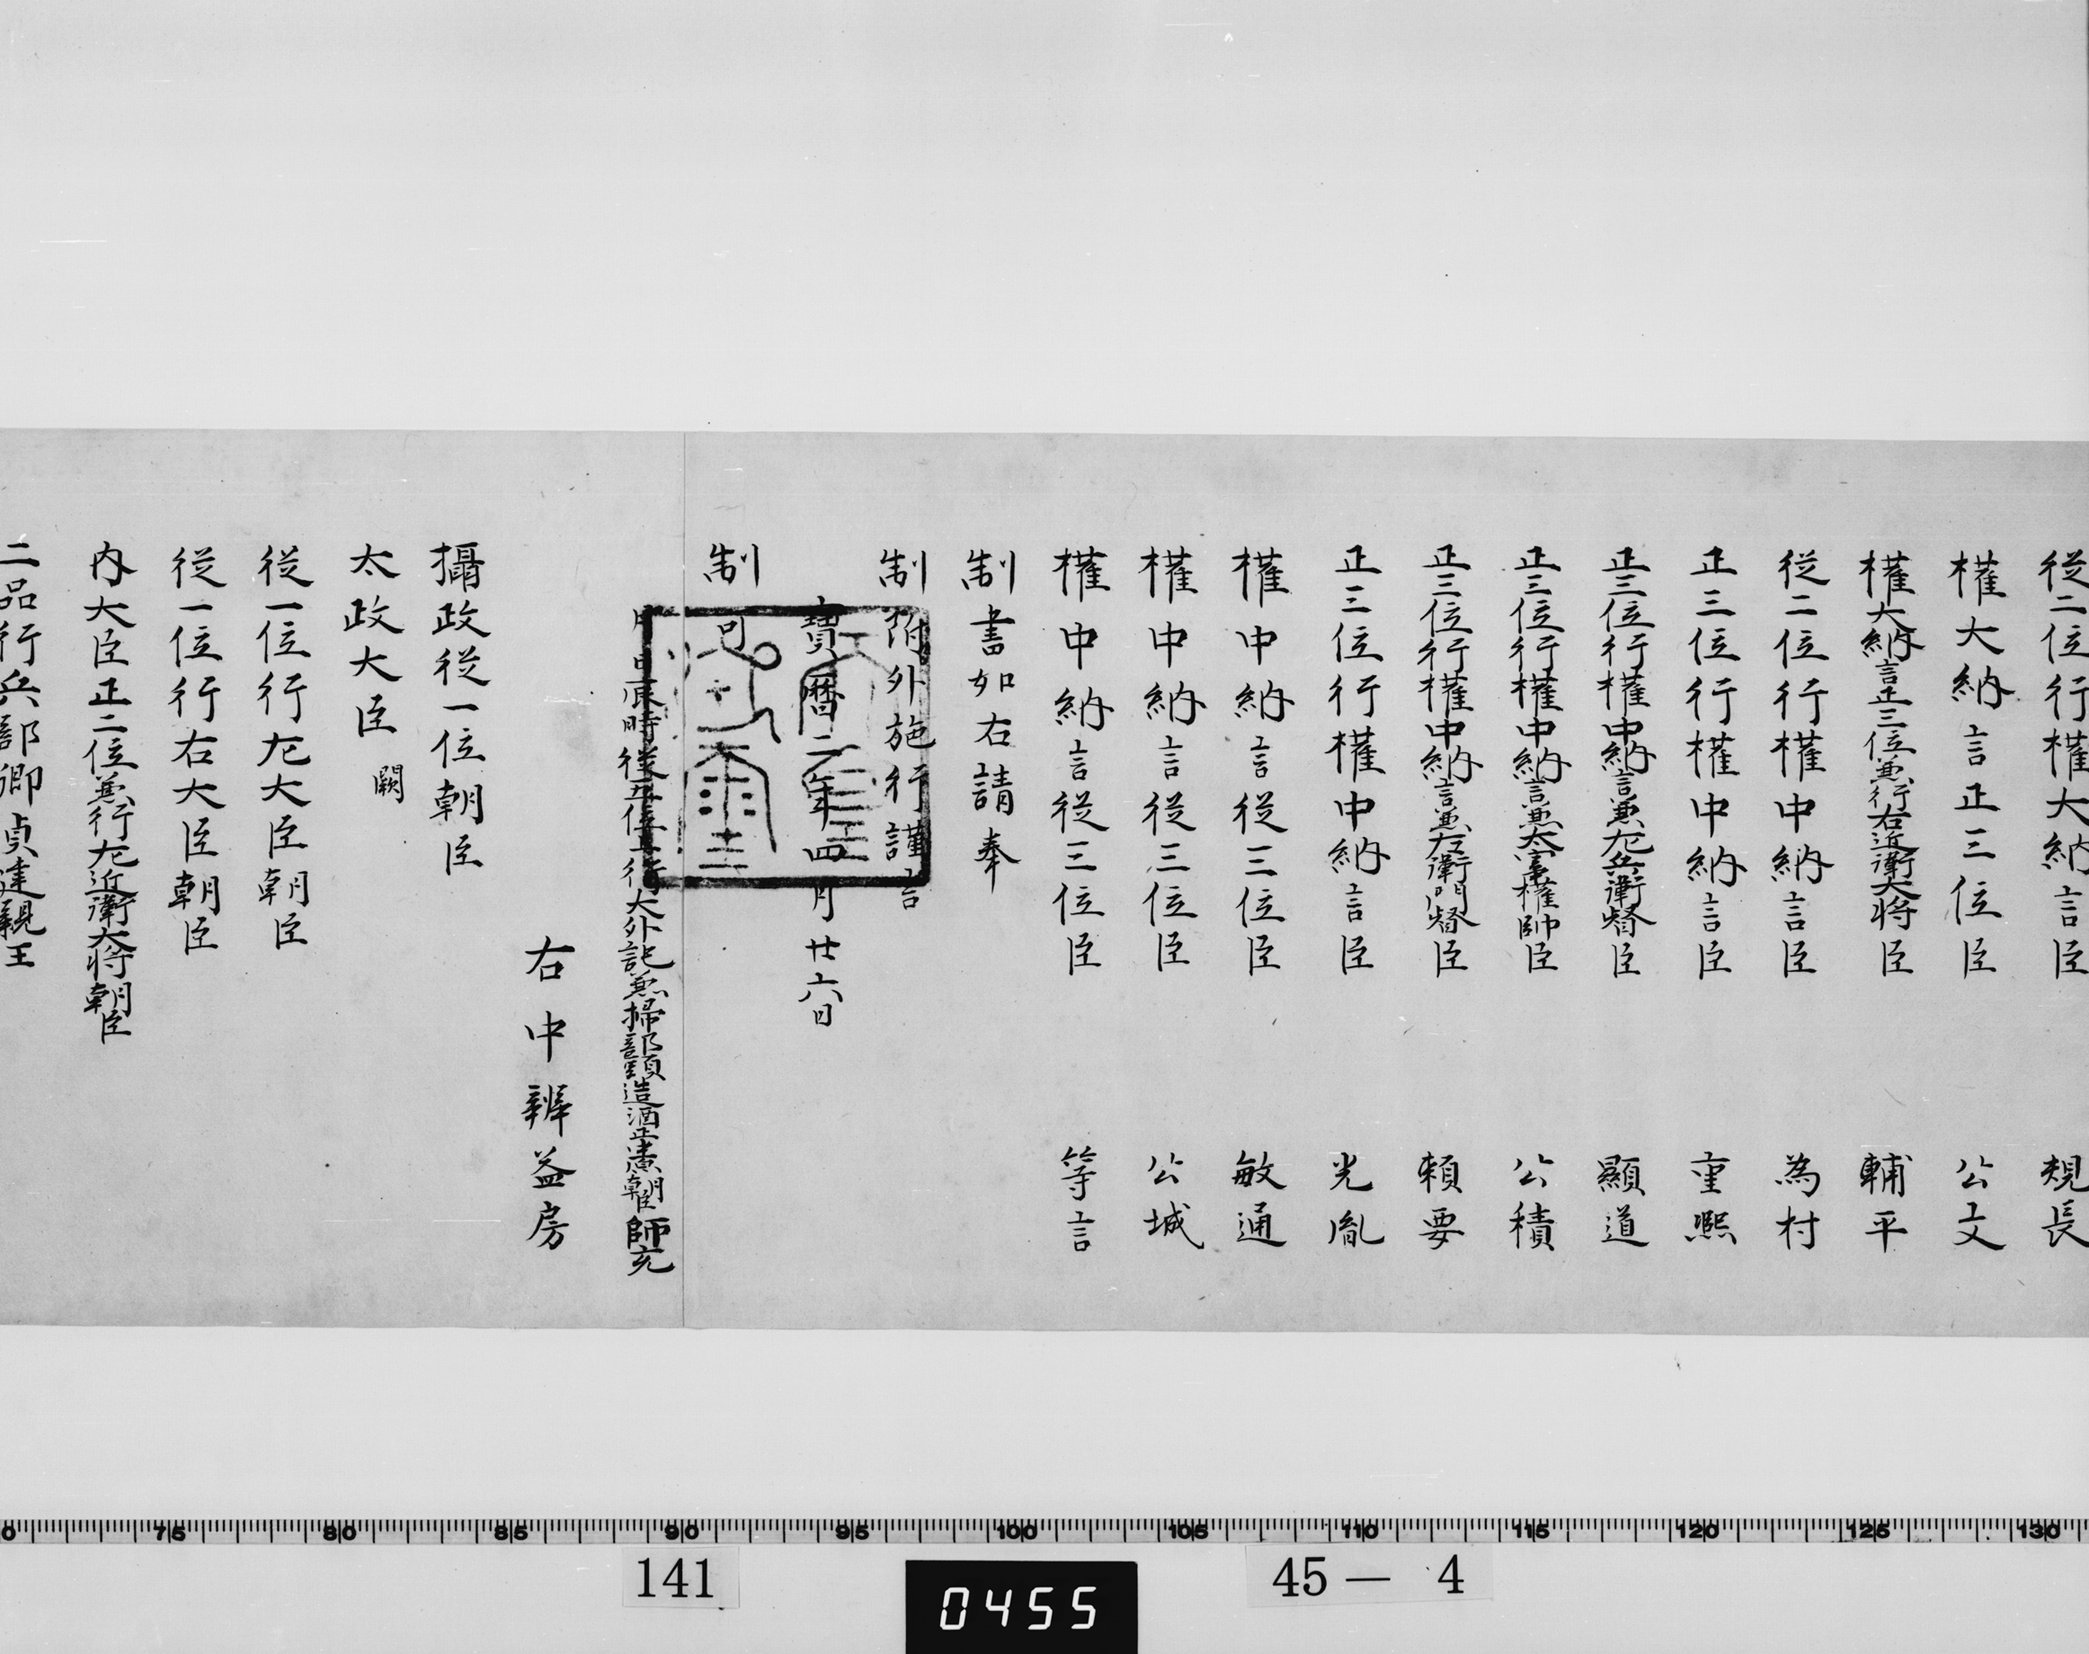 従二位行權大納言臣 規長
權大納言正三位臣 公文
權大納言正三位兼行右近衛大将臣 輔平
従二位行權中納言臣 為村
正三位行權中納言臣 重熈
正三位行權中納言兼左兵衛督臣 顯道
正三位行權中納言兼太宰權帥臣 公積
正三位行權中納言兼左衛門督臣 頼要
正三位行權中納言臣 光胤
權中納言従三位臣 敏通
權中納言従三位臣 公城
權中納言従三位臣 等言
制書如右請奉
制附外施行謹言
寶暦二年四月廿六日
制可
月 日辰時従五位上行大外記兼掃部頭造酒正 朝臣師充
右中辨益房
攝政従一位朝臣
太政大臣 闕
従一位行左大臣朝臣
従一位行右大臣朝臣
内大臣正二位兼行左近衛大将朝臣
二品行兵部卿貞建親王
75 80 85 90 95 100 105 110 115 120 125 130
141
0455
45— 4